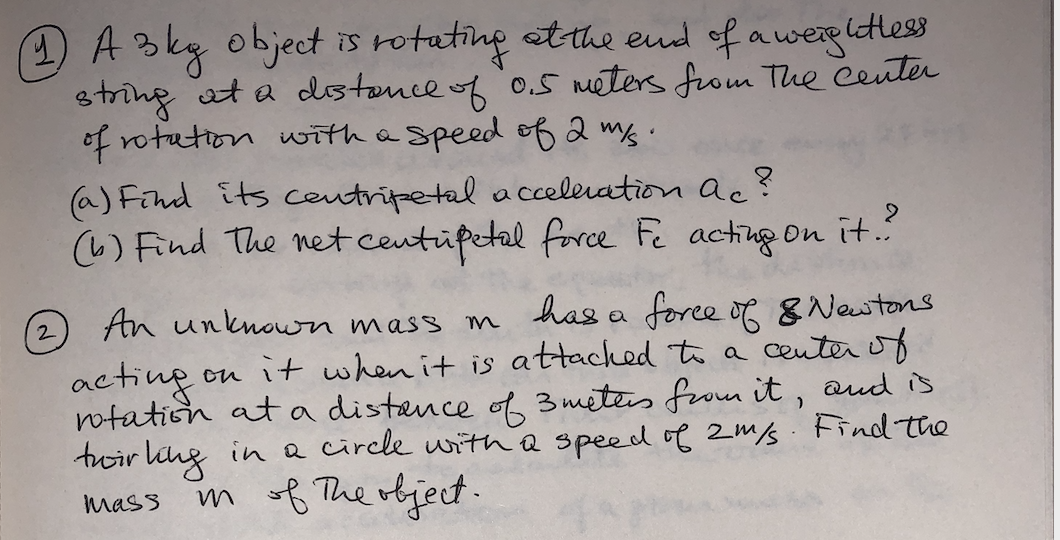 ① A 3kg object is rotating at the end of a weightless
string at a distance of 0.5 meters from The center
of rotation with a speed of 2 m/s.
(a) Find its centripetal acceleration ac?
(b) Find The net centripetal force Fc acting on it..?
② An unknown mass m has a force of 8 Newtons
acting on it when it is attached to a center of
rotation at a distance of 3 meters from it, and is
twirling in a circle with a speed of 2m/s. Find the
mass m of The object.